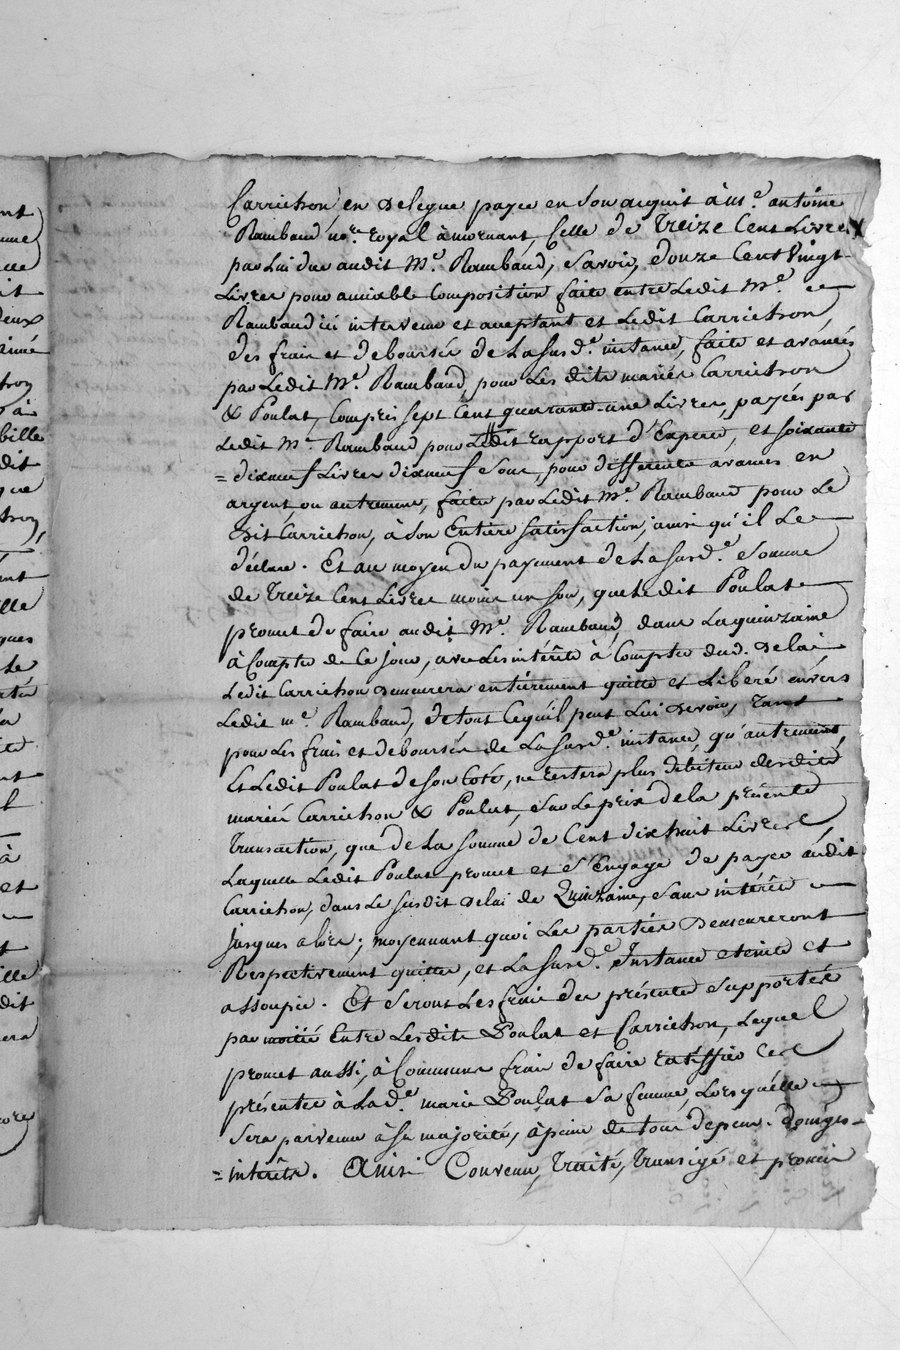 Carrichon en delegue payer en Son acquit à m.e antoine
Rambaud no.re royal à mornant, Celle de Treize Cent Livres
par Lui due audit M.e Rambaud, Savoir, douze Cent Vingt
Livres pour amiable Composition faite entre Ledit M.e
Rambaud ici intervenu et acceptant et Ledit Carrichon,
des frais et deboursés de La Susd.e instance, faits et avancés
par Ledit M.e Rambaud, pour Les dits mariés Carrichon
& Poulat, Compris Sept Cent quarante-une Livres, payées par
Ledit M.e Rambaud pour Ledit rapport d'Experts, et Soixante
= dixneuf Livres dixneuf Sous, pour differentes avances en
argent, ou autrement, faites par Ledit M.e Rambaud pour Le
dit Carrichon, à Son Entiere Satisfaction, ainsi qu'il Le
déclare. Et au moyen du payement de La Susd.e Somme
de Treize Cent Livres moins un Sou, que Ledit Poulat
promet de faire audit M.e Rambaud, dans La quinzaine
à Compter de Ce jour, avec Les intérêts à Compter dud. delai
Ledit Carrichon demeurera entièrement quitte et Liberé envers
Ledit m.e Rambaud, de tout Ce qu'il peut Lui devoir, tant
pour Les frais et deboursés de La Susd.e instance, qu'autrement,
Et Ledit Poulat de Son Coté, ne restera plus débiteur desdits
mariés Carrichon & Poulat, Sur Le prix de la présente
Transaction, que de La Somme de Cent dixhuit Livres,
Laquelle Ledit Poulat promet et S'Engage de payer audit
Carrichon, dans Le Susdit delai de Quinzaine, Sans intérêts
jusques alors; moyennant quoi Les parties demeureront
Respectivement quittes, et La Susd.e Instance éteinte et
assoupie. Et Seront Les frais des présentes Supportés
par moitié Entre Lesdits Poulat et Carrichon, Lequel
promet aussi, à Communs frais de faire ratiffier Ces
présentes à La d.e marie Poulat Sa femme, Lorsqu'elle
Sera parvenue à Sa majorité, à peine de tous depens. domges-
= intérêts. Ainsi Convenu, Traité, Transigé et promis